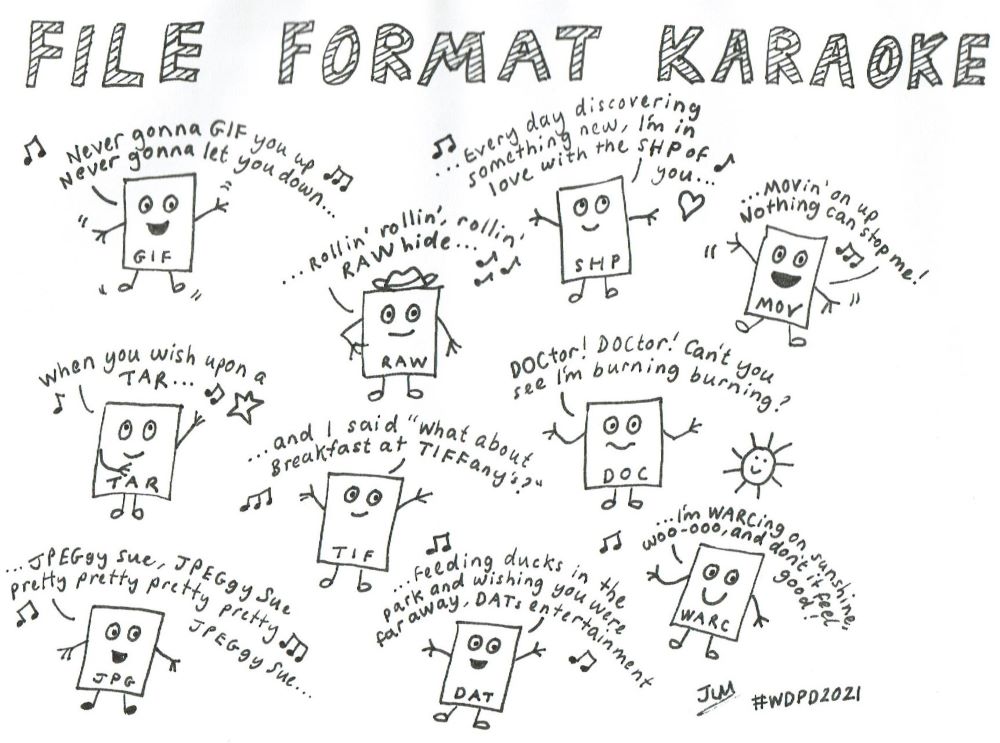 FILE FORMAT KARAOKE
Never gonna GIF you up
Never gonna let you down...
GIF
...Every day discovering
something new, I'm in
love with the SHP of
you...
SHP
...MOVin' on up
Nothing can stop me!
MOV
...Rollin' rollin', rollin'
RAWhide...
RAW
When you wish upon a
TAR...
TAR
DOCtor! DOCtor! Can't you
see I'm burning burning?
DOC
...and I said "What about
Breakfast at TIFFany's?"
TIF
...I'm WARCing on sunshine,
woo-ooo, and don't it feel
good!
WARC
...JPEGgy Sue, JPEGgy Sue
pretty pretty pretty pretty
JPEGgy Sue...
JPG
...Feeding ducks in the
park and wishing you were
far away, DATs entertainment
DAT
JLM #WDPD2021